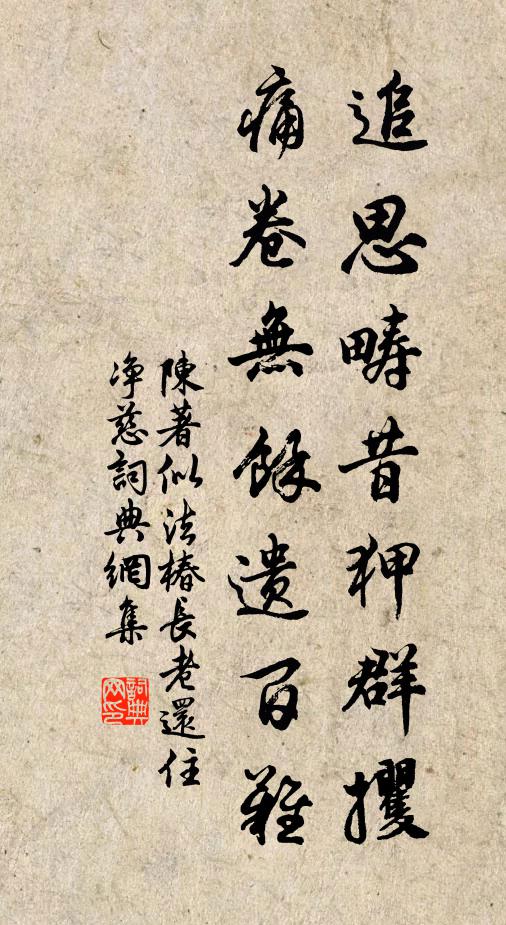 追思疇昔狎群攫
痛卷無餘遺百難
陳著似法椿長老還住
净慈詞典網集
詞典網印